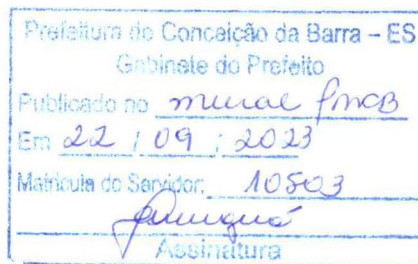 Prefeitura de Conceição da Barra – ES
Gabinete do Prefeito
Publicado no mural PMCB
Em 22 / 09 / 2023
Matrícula do Servidor: 10503
Assinatura